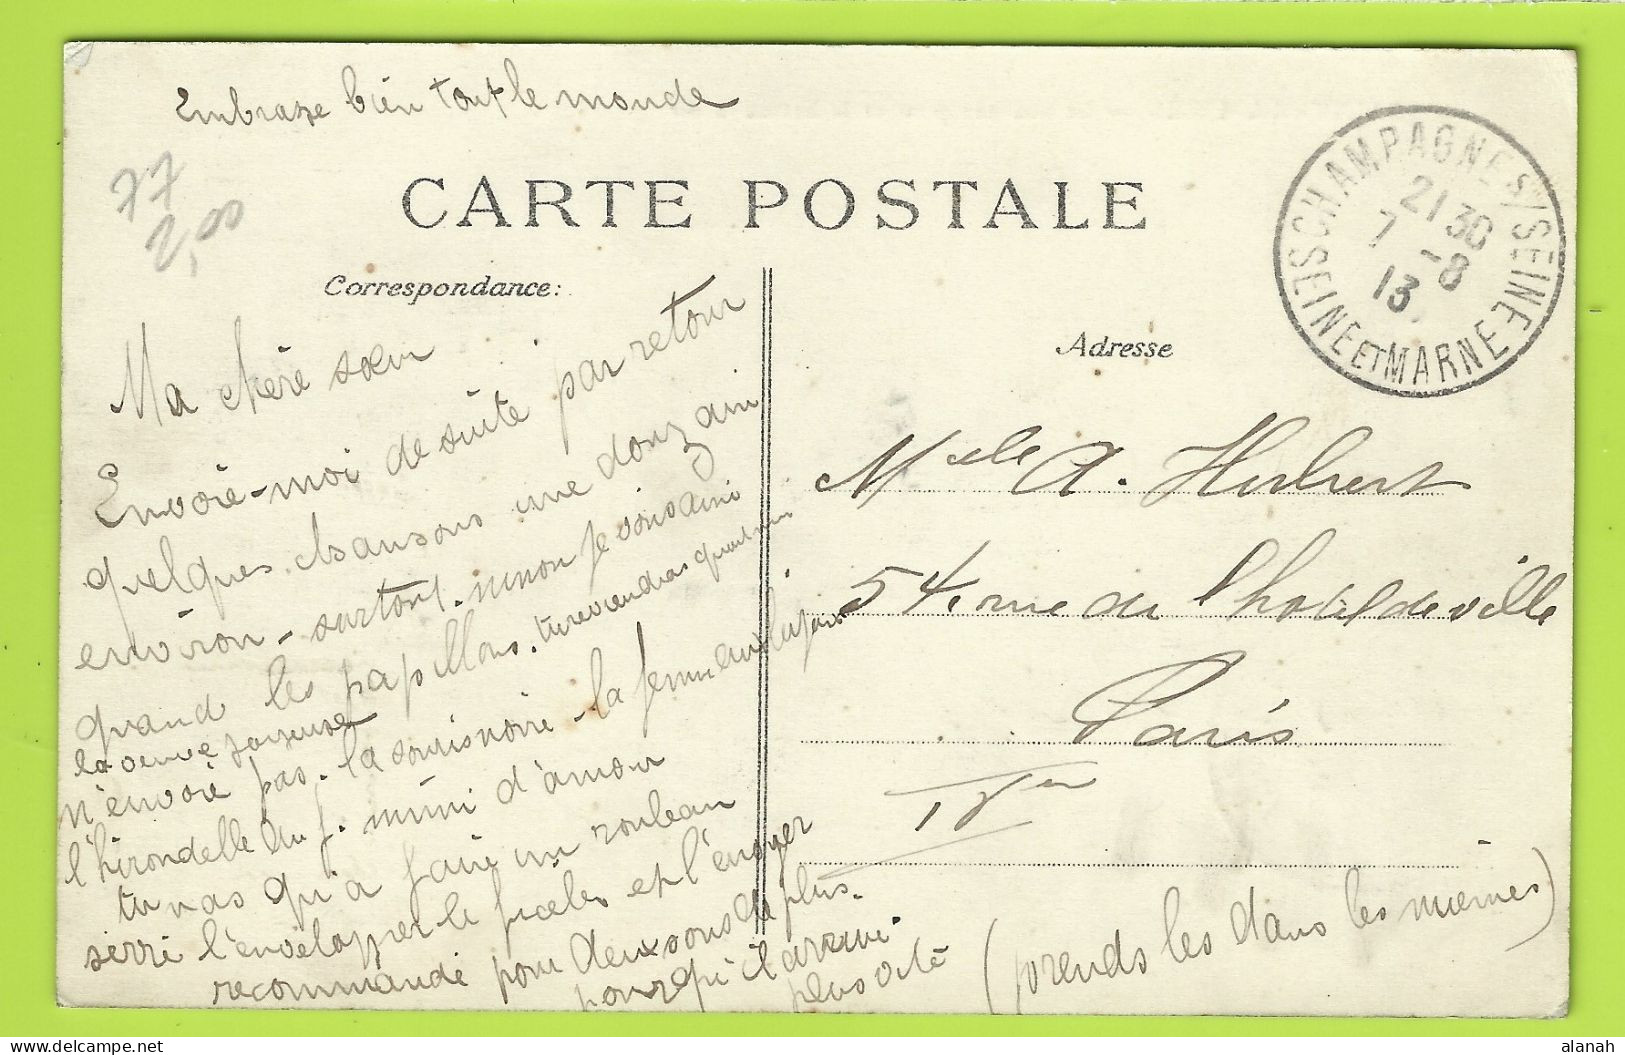 Embraze bien tout le monde
77
2,00
CARTE POSTALE
Correspondance:
Ma chère sœur
Envoie-moi de suite par retour
quelques chansons une douzain
environ - surtout. ninon je vous aime
quand les papillons. tu reviendras quand même
la veuve joyeuse
n'envoie pas. la souris noire - la femme aux bijoux
l'hirondelle du f. mimi d'amour
tu nas qu'a faire un rouleau
serré l'envelopper le ficeler et l'envoyer
recommandé pour deux sous de plus.
pourqu'il arrive
plus vite
(prends les dans les miennes)
CHAMPAGNE S/SEINE
21 30
7 -8
13
SEINE ET MARNE
Adresse
Melle A. Hubert
54, rue de l'hotel de ville
Paris
IVem
alanah